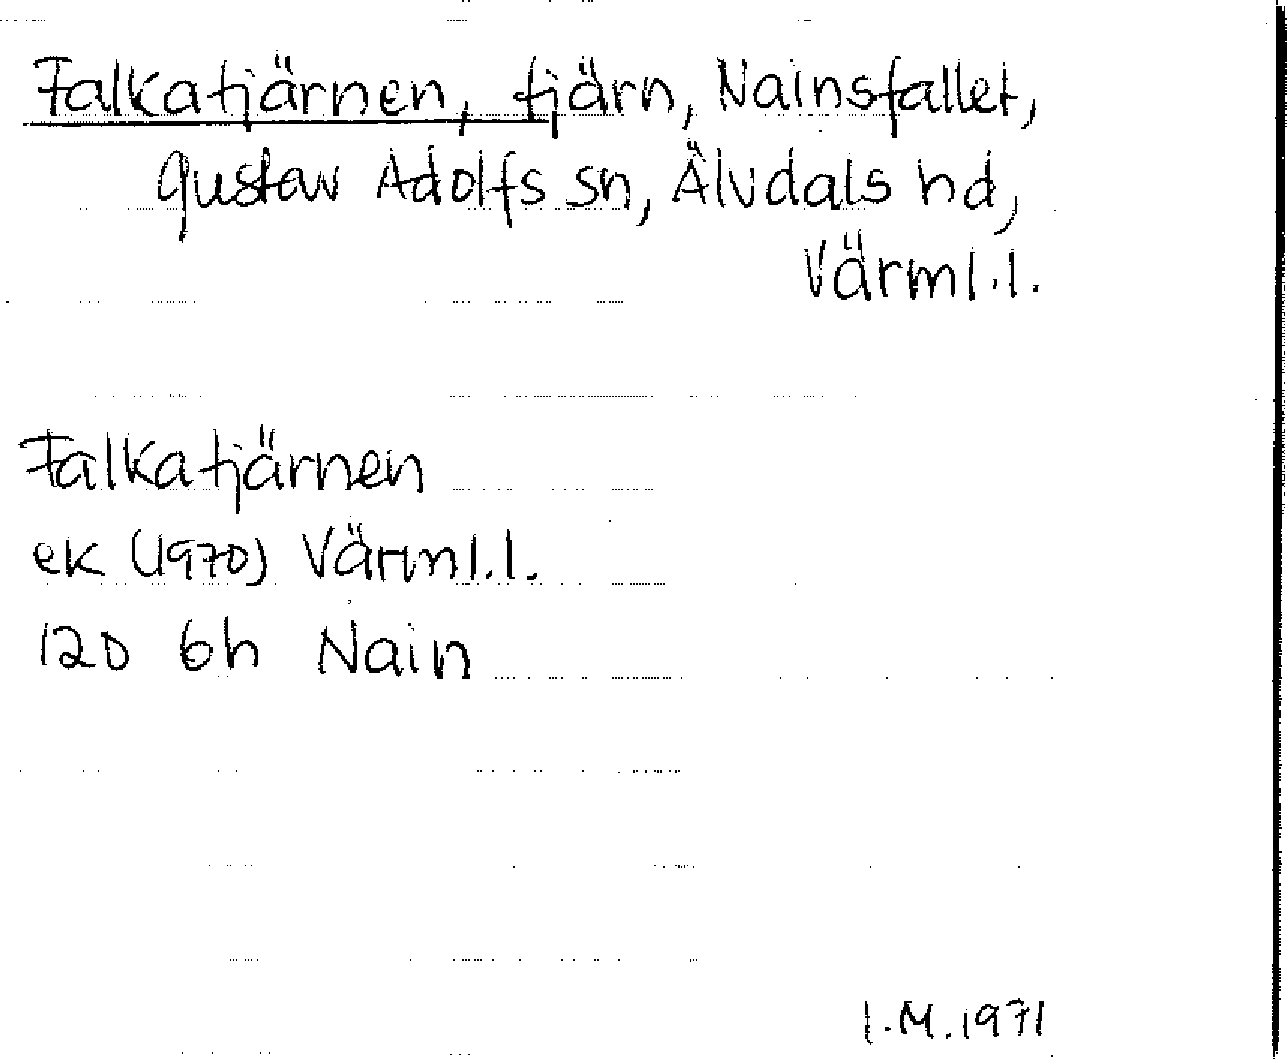 Falkatjärnen, tjärn, Nainsfallet,
Gustav Adolfs sn, Älvdals hd,
Värml.l.
Falkatjärnen
ek (1970) Värml.l.
12D 6h Nain
I.M.1971